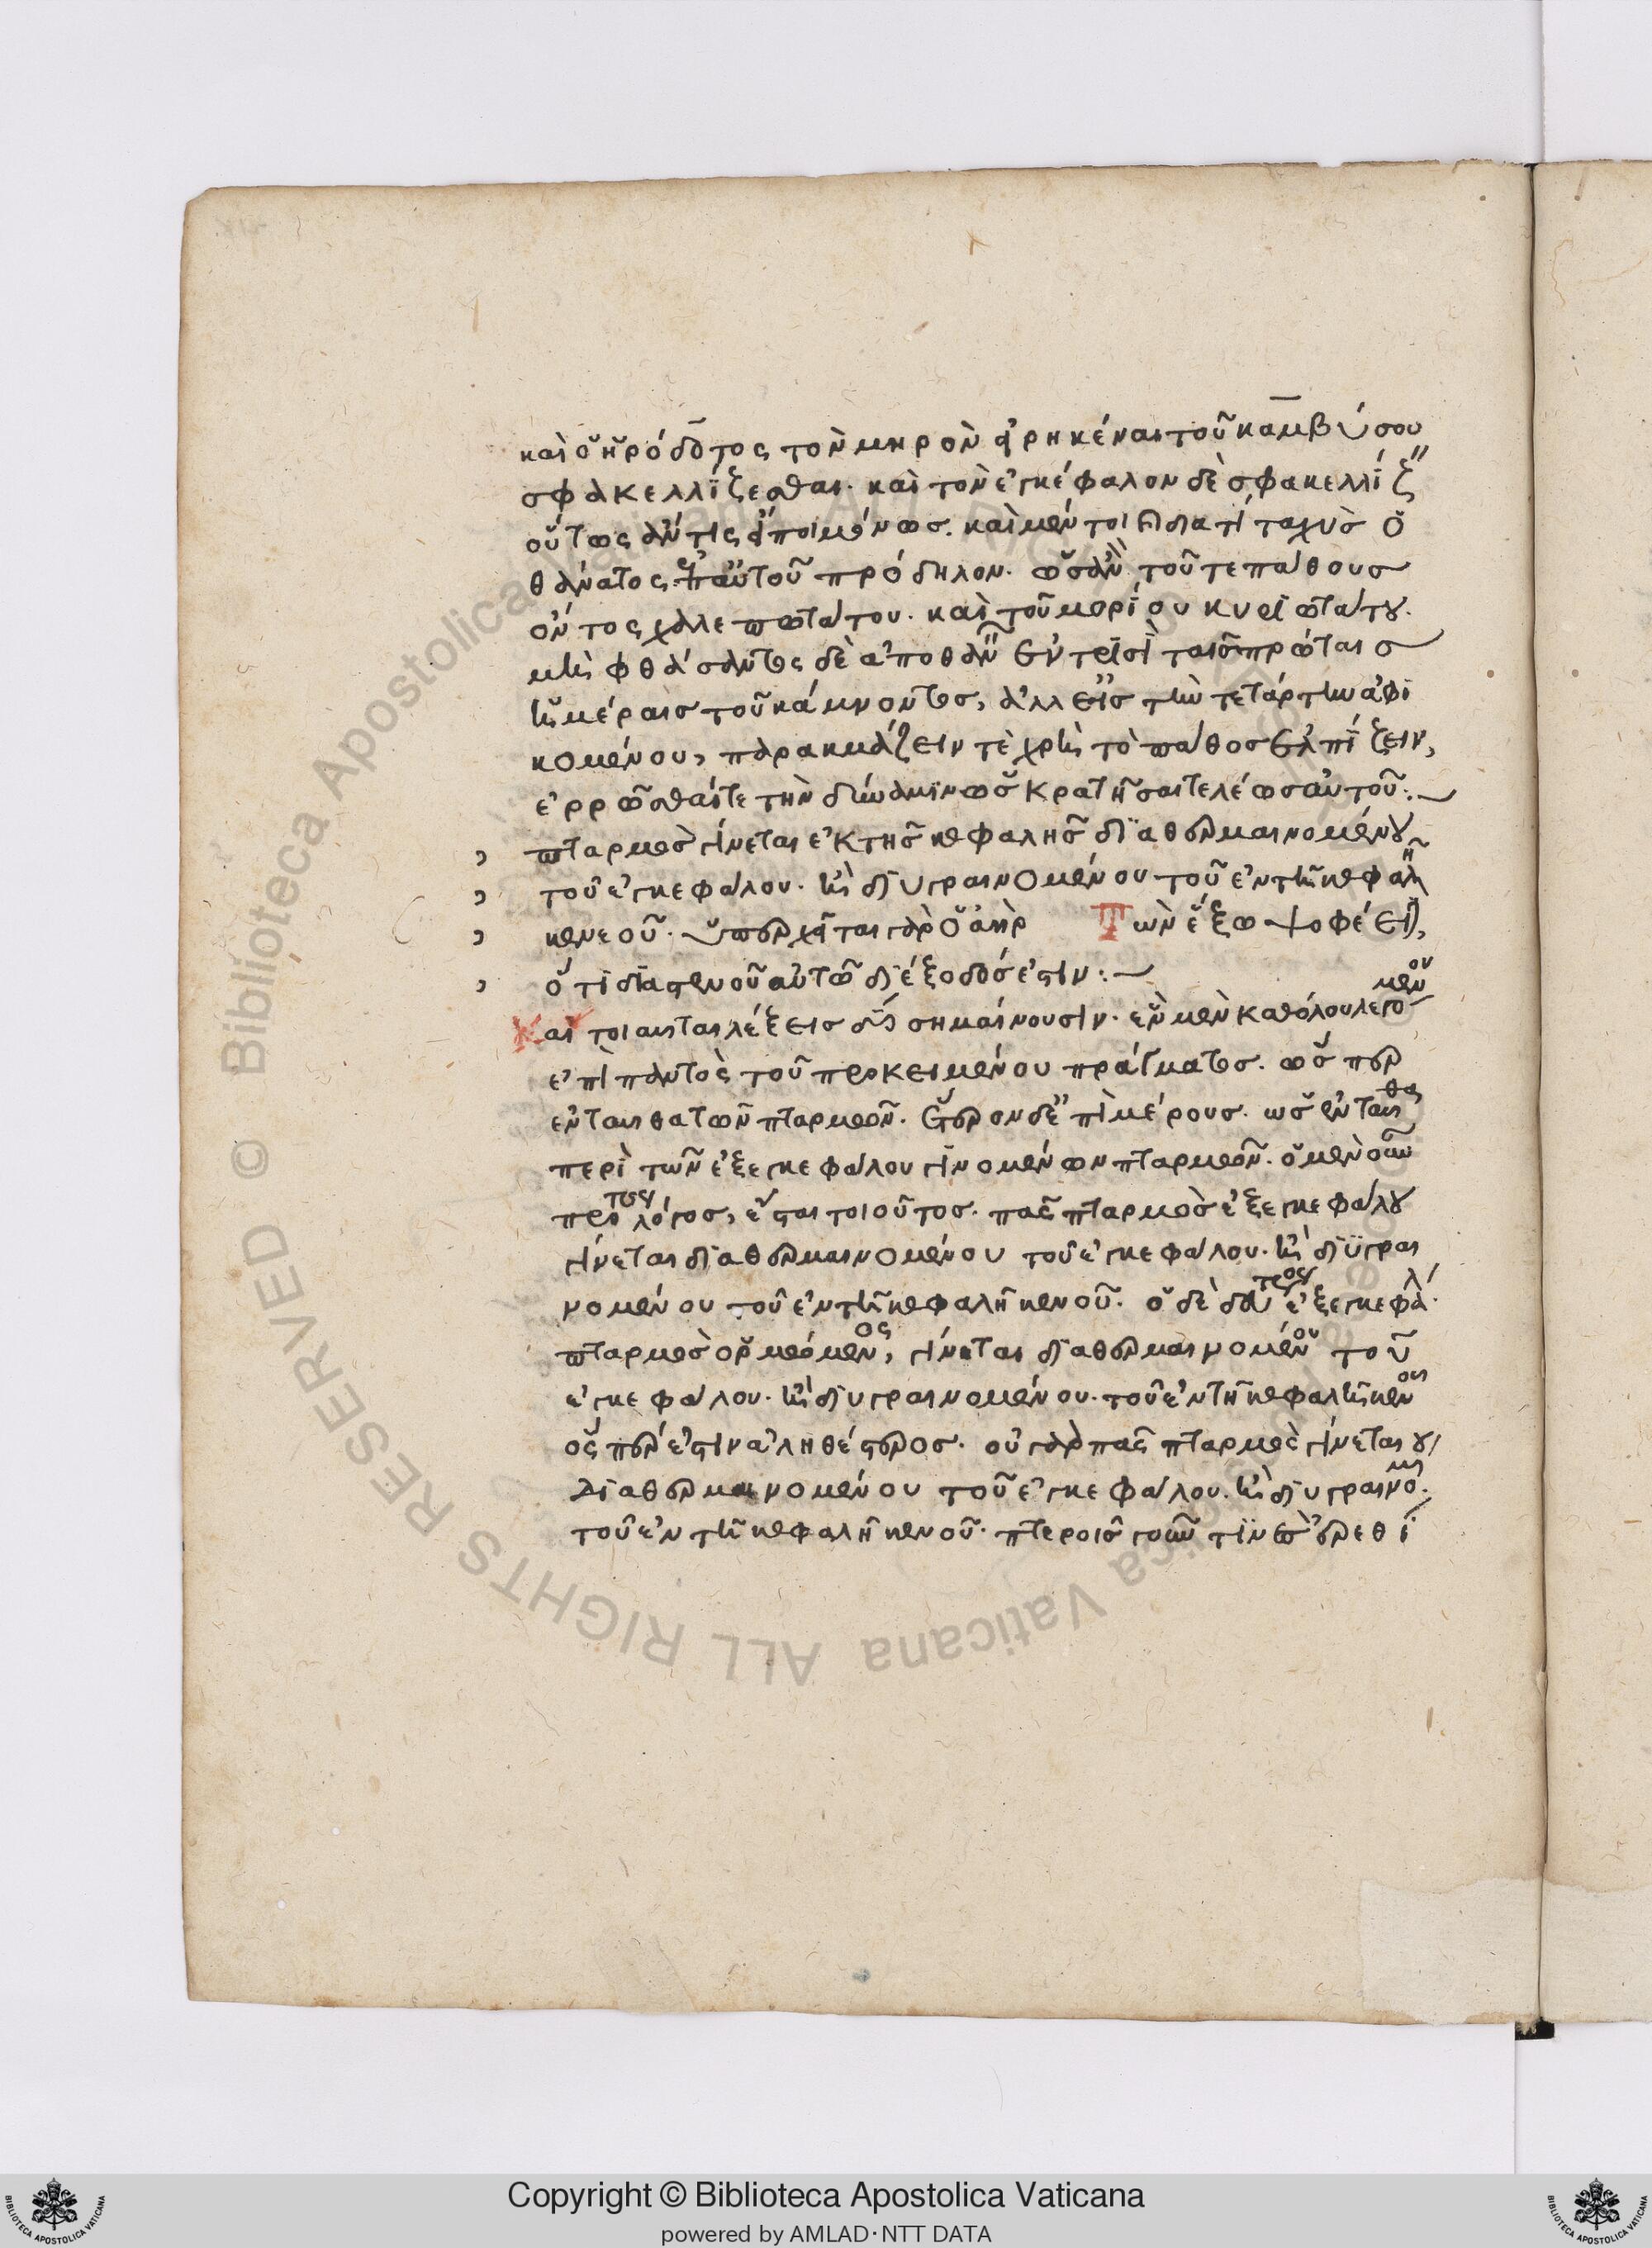 καὶ ὁ ἡρόδοτος τὸν μηρὸν εἰρηκέναι τοῦ καμβύσου
σφακελλίζεσθαι· καὶ τὸν ἐγκέφαλον δὲ σφακελλίζειν
οὕτως ἄν τις εἴποι μόνως. καὶ μέντοι διατί ταχὺς ὁ
θάνατος ἐπ αὐτοῦ πρόδηλον. ὡς ἂν τοῦ τε πάθους
ὄντος χαλεπωτάτου. καὶ τοῦ μορίου κυριωτάτου.
μὴ φθάσαντος δὲ ἀποθανεῖν ἐν τρισὶ ταῖς πρώταις
ἡμέραις τοῦ κάμνοντος, ἀλλ εἰς τὴν τετάρτην ἀφι
κομένου, παρακμάζειν τὲ χρὴ τὸ πάθος ἐλπίζειν,
ἐρρῶσθαί τε τὴν δύναμιν ὡς κρατῆσαι τελέως αὐτοῦ:
πταρμὸς γίνεται ἐκ τῆς κεφαλῆς διαθερμαινομένου
τοῦ ἐγκεφάλου. ἢ διυγραινομένου τοῦ ἐν τῇ κεφαλῇ
κενεοῦ. ὑπερχεῖται γὰρ ὁ ἀὴρ Τῶν ἔξω ψοφέει,
ὅτι διὰ στενοῦ αὐτῶ διέξοδός ἐστιν:
Καὶ τοιαῦται λέξεις δύο σημαίνουσιν. ἓν μὲν καθόλου λεγόμενον
ἐπὶ παντὸς τοῦ προκειμένου πράγματος. ὥσπερ
ἐνταῦθα τῶν πταρμῶν. ἕτερον δὲ ἐπὶ μέρους. ὡς ἐνταῦθα
περὶ τῶν ἐξ ἐγκεφάλου γινομένων πταρμῶν. ὁ μὲν οὖν
πρότερος λόγος, ἔσται τοιοῦτος. πᾶς πταρμὸς ἐξ ἐγκεφάλου
γίνεται διαθερμαινομένου τοῦ ἐγκεφάλου. ἢ διϋγραι
νομένου τοῦ ἐν τῇ κεφαλῇ κενοῦ. ὁ δὲ δεύτερος ἐξ ἐγκεφάλου
πταρμὸς ὁρμώμενος, γίνεται διαθερμαινομένου τοῦ
ἐγκεφάλου. ἢ διυγραινομένου. τοῦ ἐν τῇ κεφαλῇ κενοῦ
ὅς πέρ ἐστιν ἀληθέστερος. οὐ γὰρ πᾶς πταρμὸς γίνεται
διαθερμαινομένου τοῦ ἐγκεφάλου. ἢ διυγραινομένου
τοῦ ἐν τῇ κεφαλῇ κενοῦ. πτεροῖς γοῦν τινῶν ἐρεθι
Copyright © Biblioteca Apostolica Vaticana
powered by AMLAD·NTT DATA